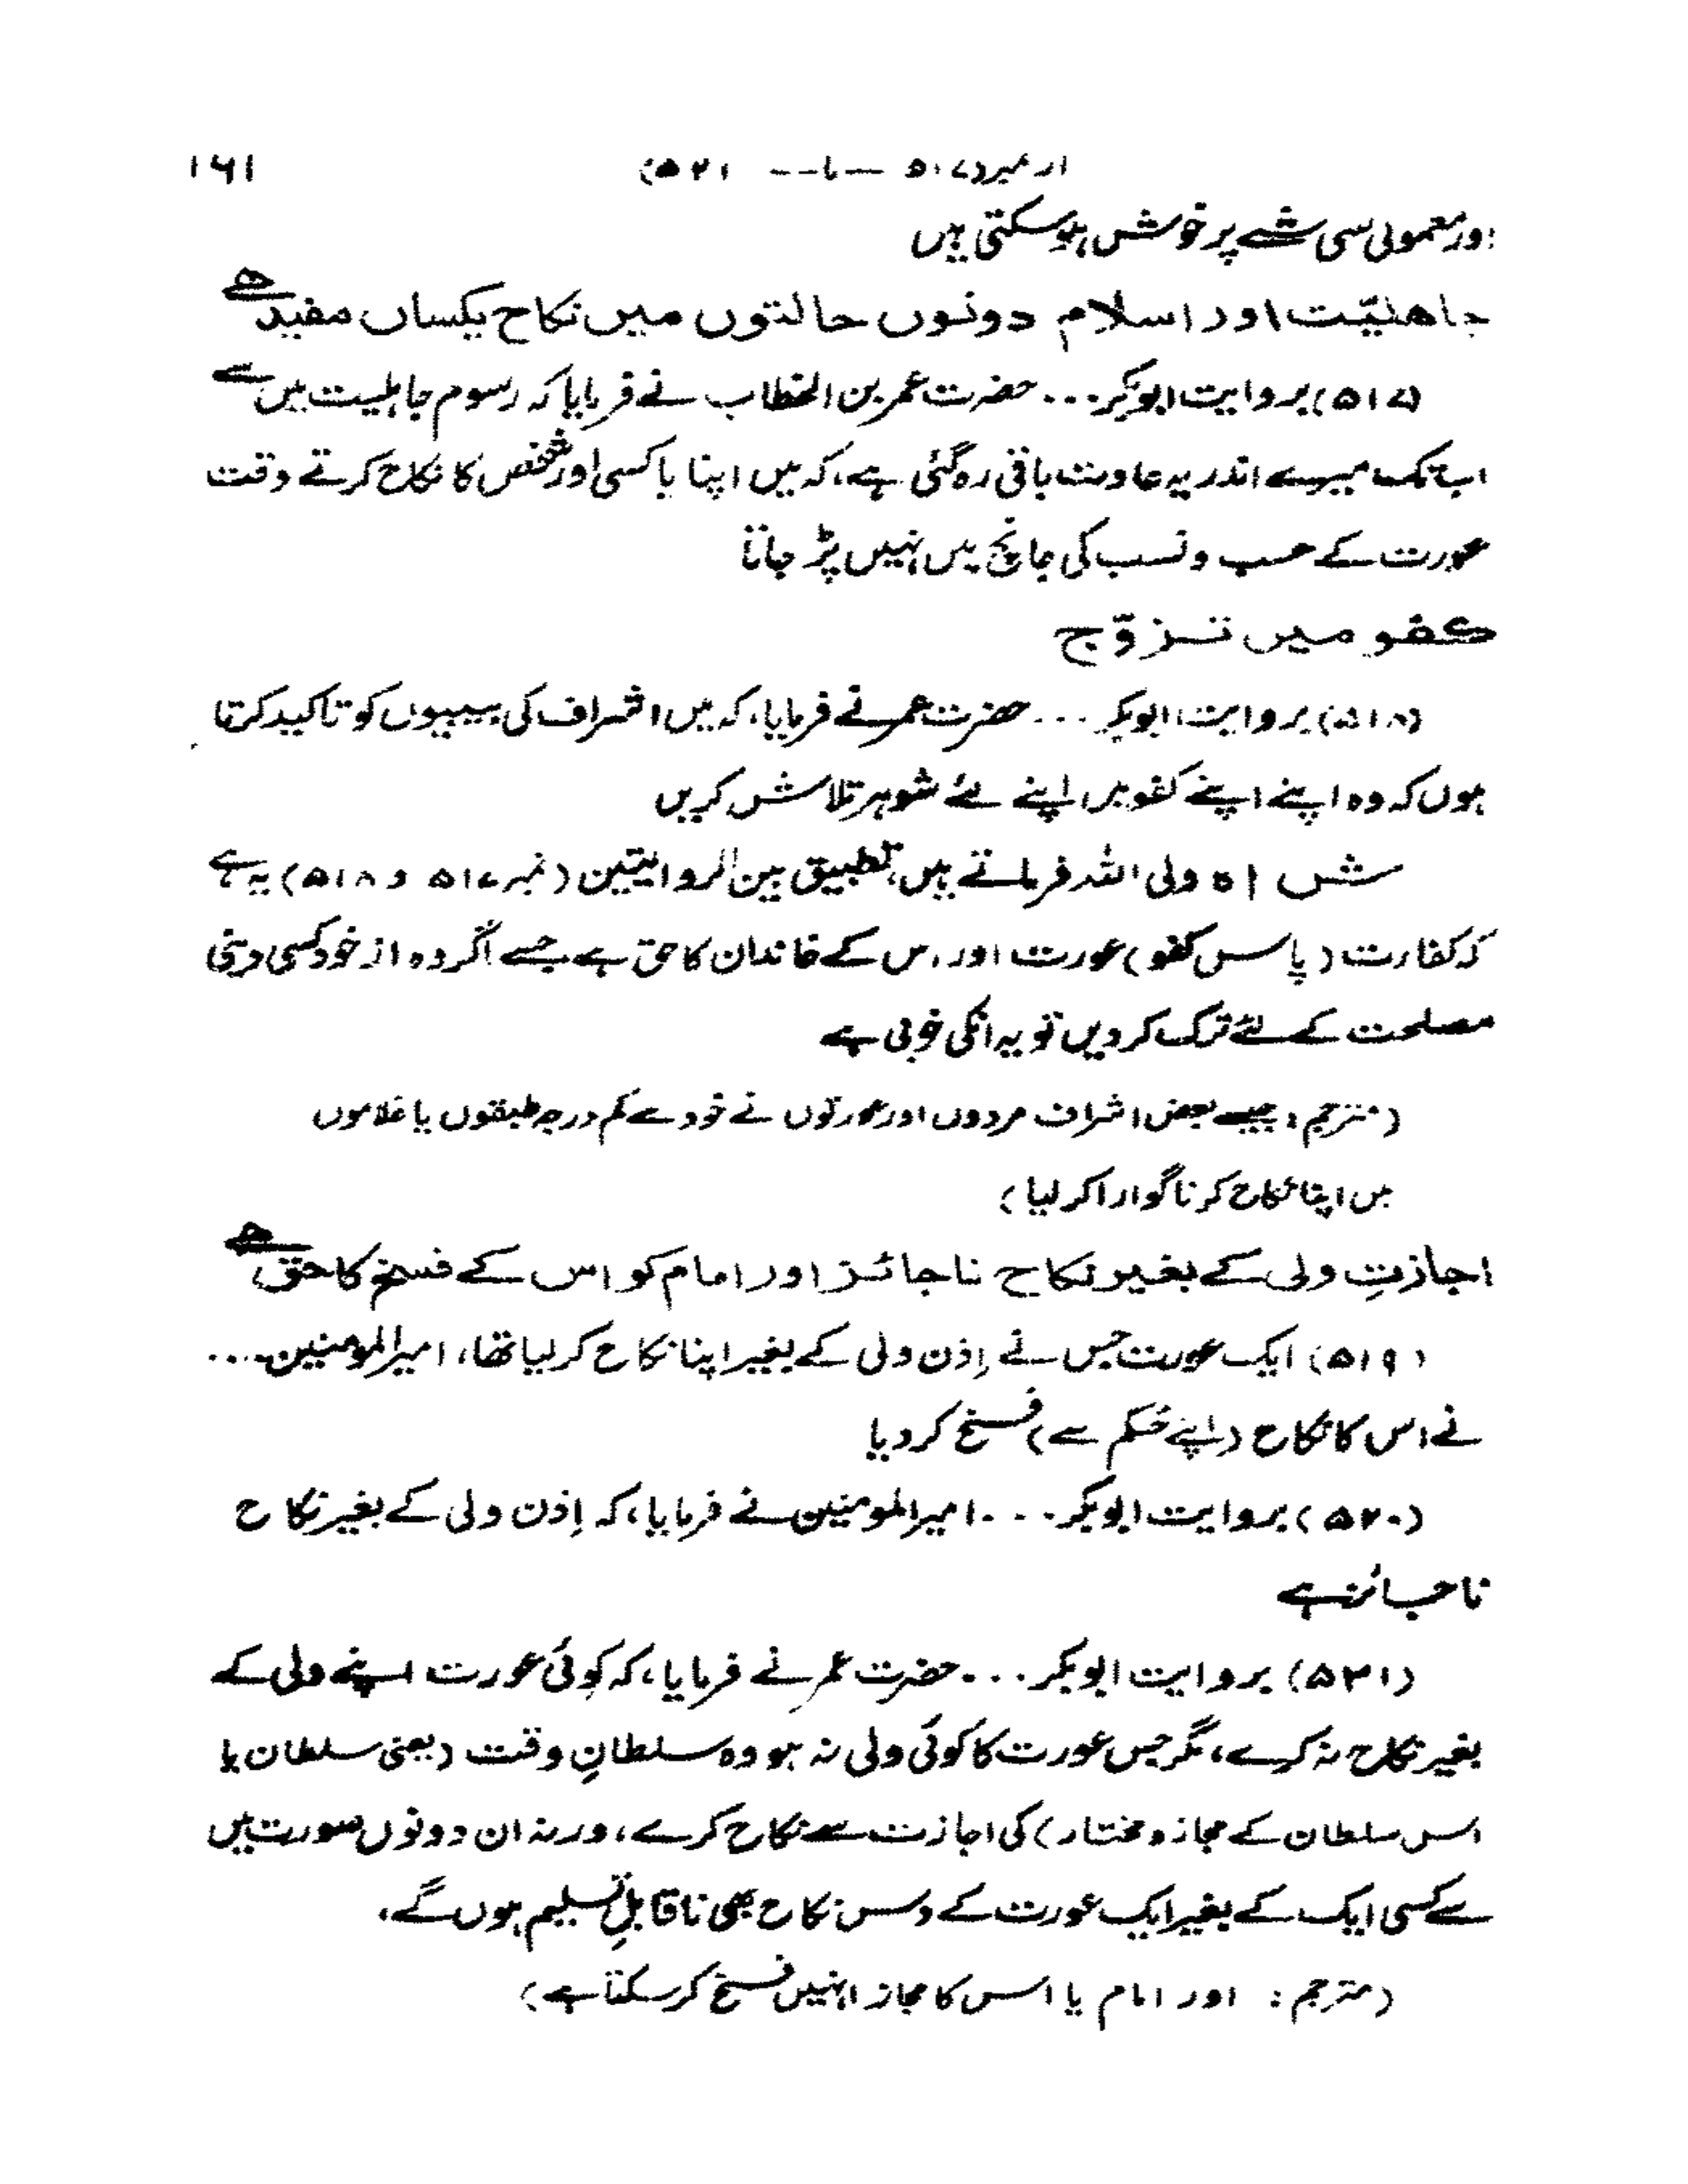 از نمبر (۵۱۷ — تا — ۵۲۱) ۱۶۱
اور معمولی سی شے پر خوش ہو سکتی ہیں
جاھلیّت اور اسلام دونوں حالتوں میں نکاح یکساں مفید ھے
(۵۱۷) بروایت ابوبکر... حضرت عمر بن الخطاب نے فرمایا کہ رسوم جاہلیت میں سے
اب تک میرے اندر یہ عادت باقی رہ گئی ہے، کہ میں اپنا یا کسی اور شخص کا نکاح کرتے وقت
عورت کے حسب و نسب کی جانچ میں نہیں پڑ جاتا
کفو میں تزوّج
(۵۱۸) بروایت ابوبکر... حضرت عمر نے فرمایا، کہ میں اشراف کی بیبیوں کو تاکید کرتا
ہوں کہ وہ اپنے اپنے کفو میں اپنے لئے شوہر تلاش کریں
شاہ ولی اللہ فرماتے ہیں، تطبیق بین الروایتین (نمبر ۵۱۷ و ۵۱۸) یہ ہے
کہ کفارت (پاس کفو) عورت اور اس کے خاندان کا حق ہے جسے اگر وہ از خود کسی دینی
مصلحت کے لئے ترک کردیں تو یہ انکی خوبی ہے
(مترجم: جیسے بعض اشراف مردوں اور عورتوں نے خود سے کم درجہ طبقوں یا غلاموں
میں اپنا نکاح کرنا گوارا کر لیا)
اجازتِ ولی کے بغیر نکاح ناجائز اور امام کو اس کے فسخ کا حق ھے
(۵۱۹) ایک عورت جس نے اِذن ولی کے بغیر اپنا نکاح کر لیا تھا، امیرالمومنین....
نے اس کا نکاح (اپنے حُکم سے) فسخ کر دیا
(۵۲۰) بروایت ابوبکر... امیرالمومنین نے فرمایا، کہ اِذن ولی کے بغیر نکاح
ناجائز ہے
(۵۲۱) بروایت ابوبکر... حضرت عمر نے فرمایا، کہ کوئی عورت اپنے ولی کے
بغیر نکاح نہ کرے، مگر جس عورت کا کوئی ولی نہ ہو وہ سلطانِ وقت (یعنی سلطان یا
اس سلطان کے مجاز و مختار) کی اجازت سے نکاح کرے، ورنہ ان دونوں صورت میں
سے کسی ایک کے بغیر ایک عورت کے دس نکاح بھی ناقابلِ تسلیم ہوں گے،
(مترجم: اور امام یا اس کا مجاز انہیں فسخ کر سکتا ہے)